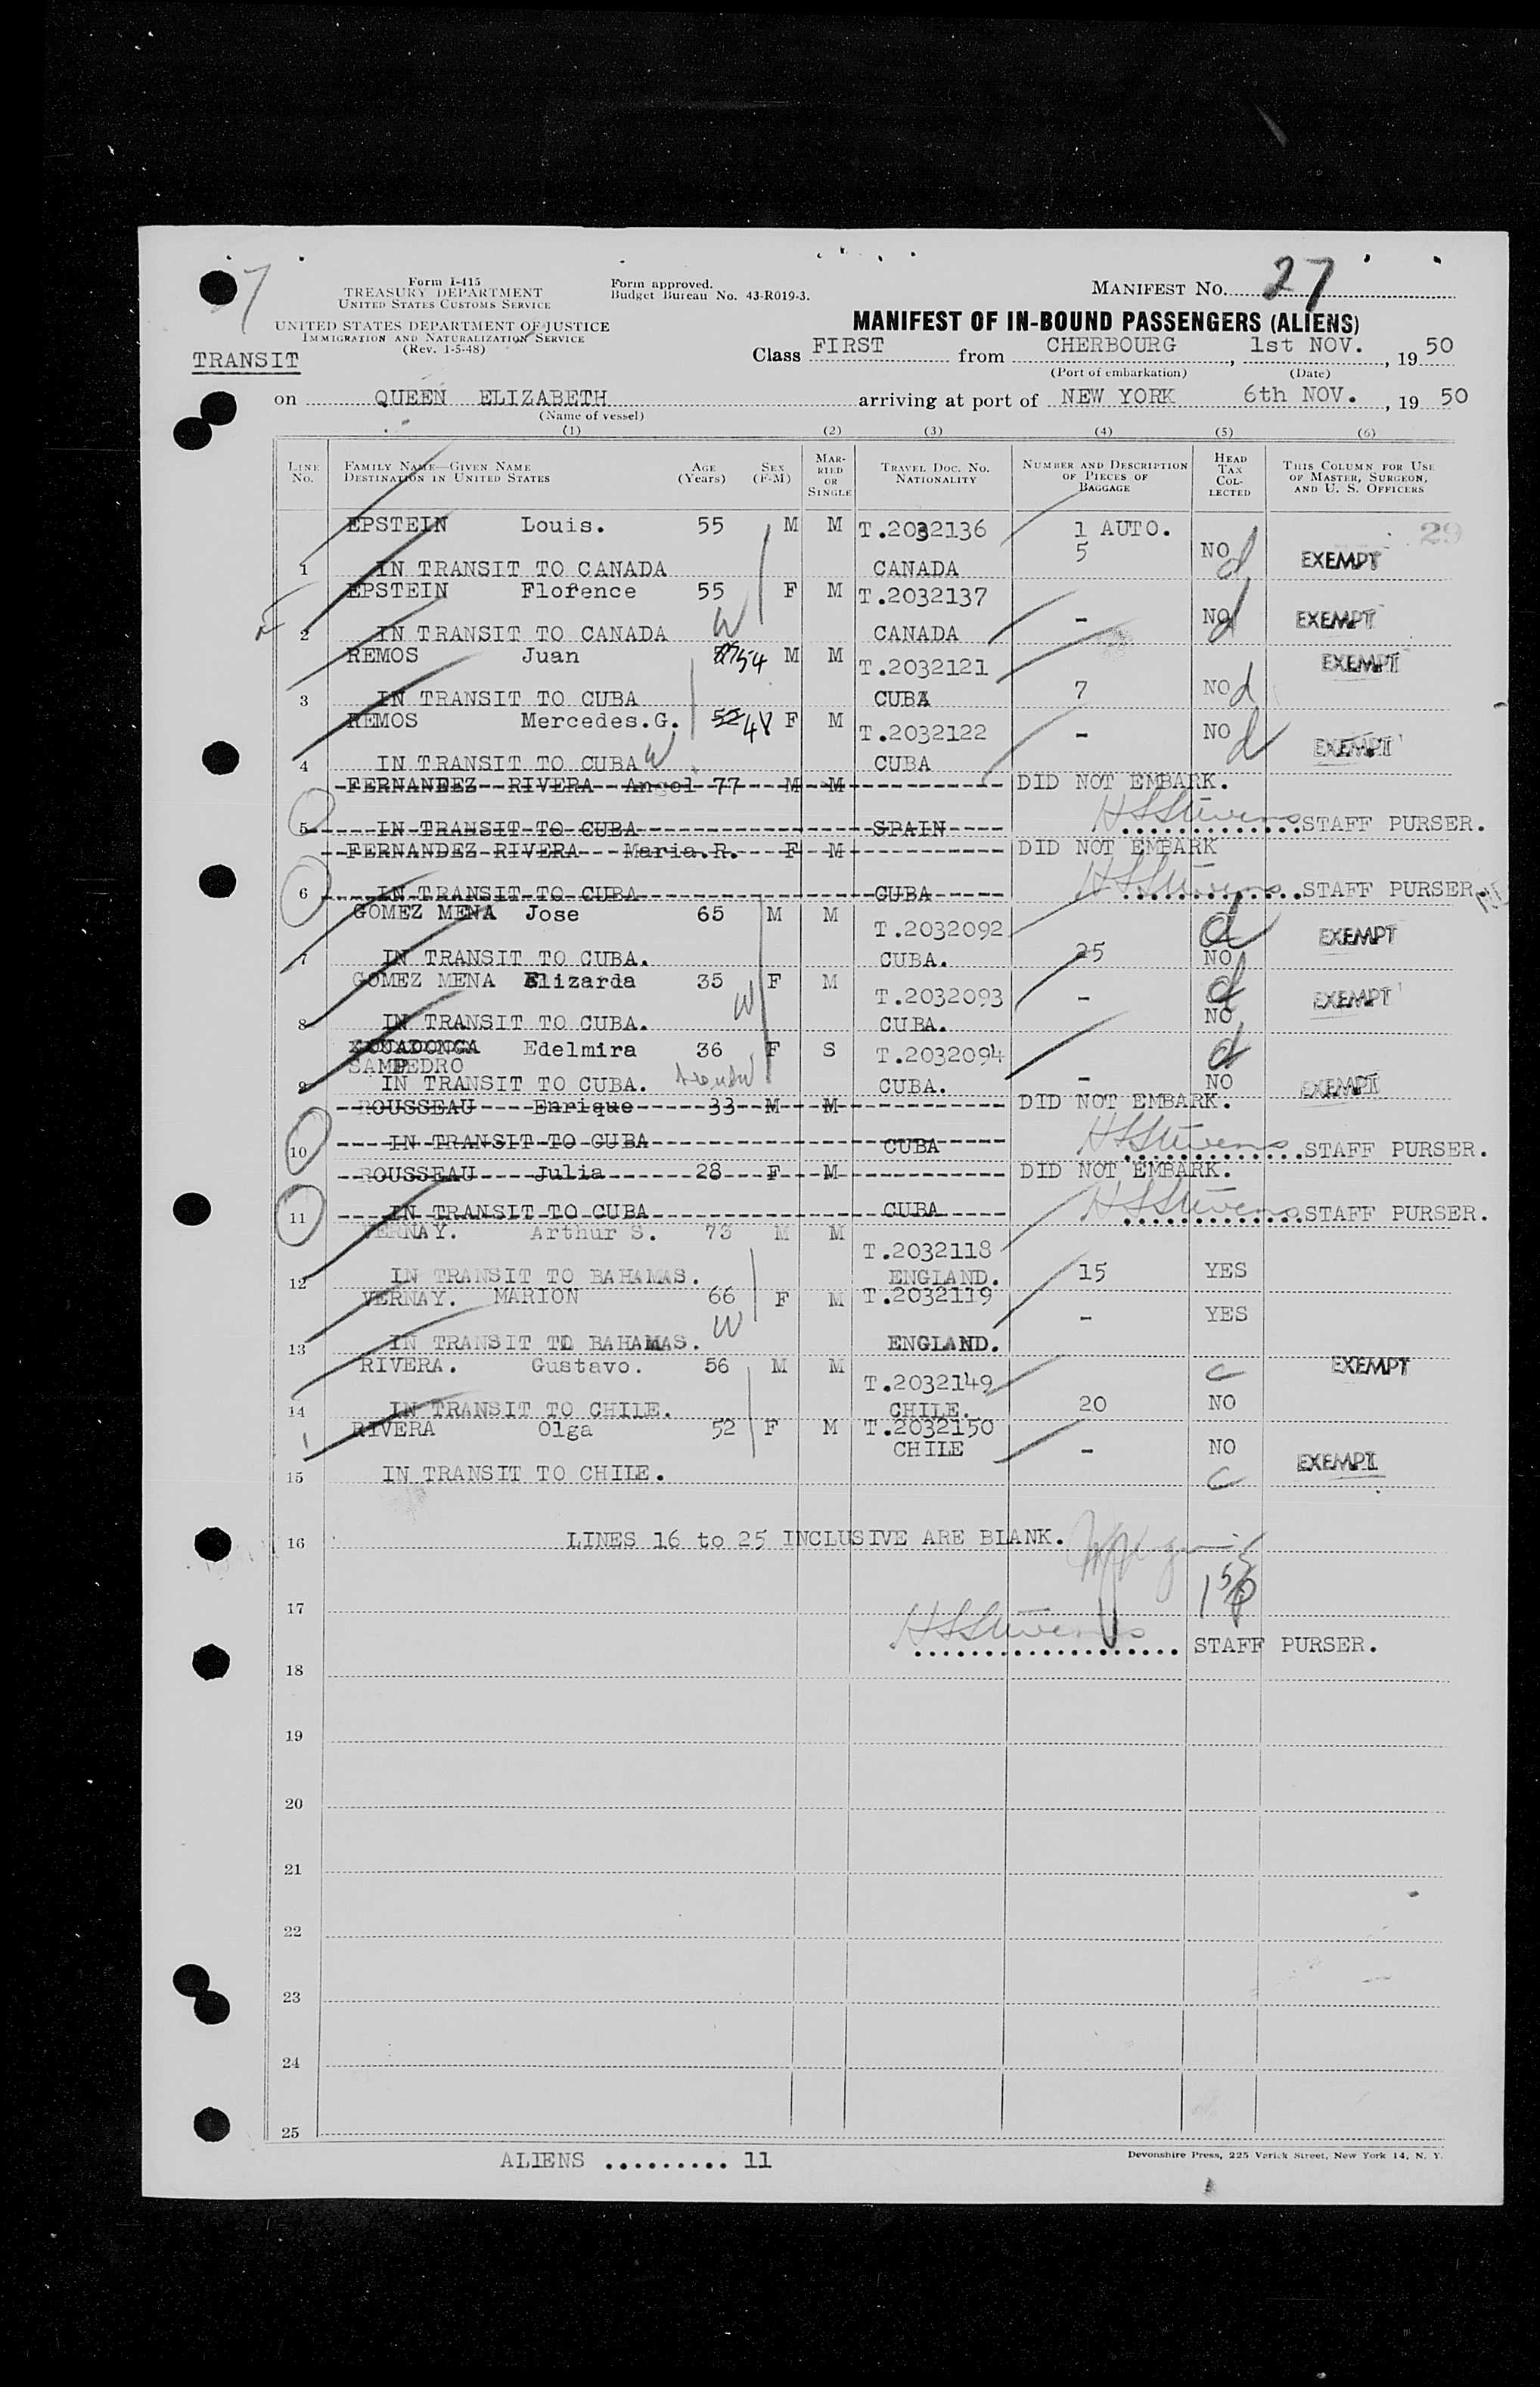 27
Form I-415
TREASURY DEPARTMENT
UNITED STATES CUSTOMS SERVICE
Form approved.
Budget Bureau No. 43-R019-3.
MANIFEST NO. 27
UNITED STATES DEPARTMENT OF JUSTICE
IMMIGRATION AND NATURALIZATION SERVICE
(Rev. 1-5-48)
MANIFEST OF IN-BOUND PASSENGERS (ALIENS)
TRANSIT
Class FIRST from CHERBOURG, 1st NOV., 19 50
(Port of embarkation) (Date)
on QUEEN ELIZABETH arriving at port of NEW YORK 6th NOV., 19 50
(Name of vessel)
(1) (2) (3) (4) (5) (6)
LINE No. FAMILY NAME—GIVEN NAME DESTINATION IN UNITED STATES AGE (Years) SEX (F-M) MARRIED OR SINGLE TRAVEL DOC. NO. NATIONALITY NUMBER AND DESCRIPTION OF PIECES OF BAGGAGE HEAD TAX COLLECTED THIS COLUMN FOR USE OF MASTER, SURGEON, AND U. S. OFFICERS
EPSTEIN Louis. 55 M M T.2032136 1 AUTO. 29
1 IN TRANSIT TO CANADA CANADA 5 NO d EXEMPT
EPSTEIN Florence 55 F M T.2032137
2 IN TRANSIT TO CANADA W CANADA - NO d EXEMPT
REMOS Juan 54 M M T.2032121 EXEMPT
3 IN TRANSIT TO CUBA CUBA 7 NO d
REMOS Mercedes.G. 52 48 F M T.2032122 - NO d
4 IN TRANSIT TO CUBA W CUBA EXEMPT
FERNANDEZ RIVERA Angel 77 M M DID NOT EMBARK.
5 IN TRANSIT TO CUBA SPAIN HSStivens STAFF PURSER.
FERNANDEZ RIVERA Maria.R. F M DID NOT EMBARK
6 IN TRANSIT TO CUBA CUBA HSStivens STAFF PURSER.
GOMEZ MENA Jose 65 M M T.2032092 d EXEMPT
7 IN TRANSIT TO CUBA. CUBA. 25 NO
GOMEZ MENA Elizarda 35 F M T.2032093 - d EXEMPT
8 IN TRANSIT TO CUBA. W CUBA. NO
COUADONGA Edelmira 36 F S T.2032094 d
SAMPEDRO
9 IN TRANSIT TO CUBA. CUBA. - NO EXEMPT
ROUSSEAU Enrique 33 M M DID NOT EMBARK.
10 IN TRANSIT TO CUBA CUBA HSStivens STAFF PURSER.
ROUSSEAU Julia 28 F M DID NOT EMBARK.
11 IN TRANSIT TO CUBA CUBA HSStivens STAFF PURSER.
VERNAY. Arthur S. 73 M M T.2032118
12 IN TRANSIT TO BAHAMAS. ENGLAND. 15 YES
VERNAY. MARION 66 F M T.2032119 - YES
13 IN TRANSIT TO BAHAMAS. W ENGLAND.
RIVERA. Gustavo. 56 M M T.2032149 c EXEMPT
14 IN TRANSIT TO CHILE. CHILE. 20 NO
RIVERA Olga 52 F M T.2032150
CHILE - NO EXEMPT
15 IN TRANSIT TO CHILE. c
16 LINES 16 to 25 INCLUSIVE ARE BLANK.
17
HSStivens STAFF PURSER.
18
19
20
21
22
23
24
25
ALIENS ......... 11
Devonshire Press, 225 Varick Street, New York 14, N. Y.